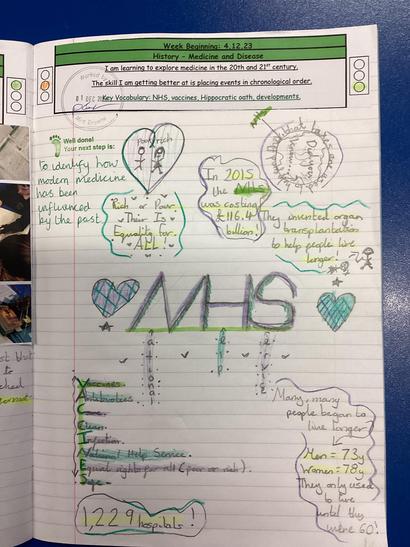 Week Beginning: 4.12.23
History – Medicine and Disease
I am learning to explore medicine in the 20th and 21st century.
The skill I am getting better at is placing events in chronological order.
Key Vocabulary: NHS, vaccines, Hippocratic oath, developments.
Well done!
Your next step is:
to identify how
modern medicine
has been
influenced
by the past
Poor rich
Rich or Poor
Thier Is
Equality for
ALL!
In 2015
the NHS
was costing
£116.4
billion!
They invented organ
transplantation
to help people live
longer!
NHS
National
Help
Service
Vaccines
Antibiotics
Clean
Infection
National Help Service.
Equal rights for all (poor or rich).
Many, many
people began to
live longer
Men = 73y
Women = 78y
They only used
to live
until they
were 60!
1,229 hospitals!